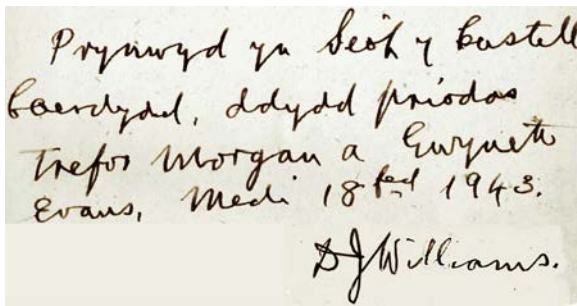 Prynwyd yn Siop y Castell
Caerdydd, ddydd priodas
Trefor Morgan a Gwyneth
Evans, Medi 18fed 1943.
D J Williams.